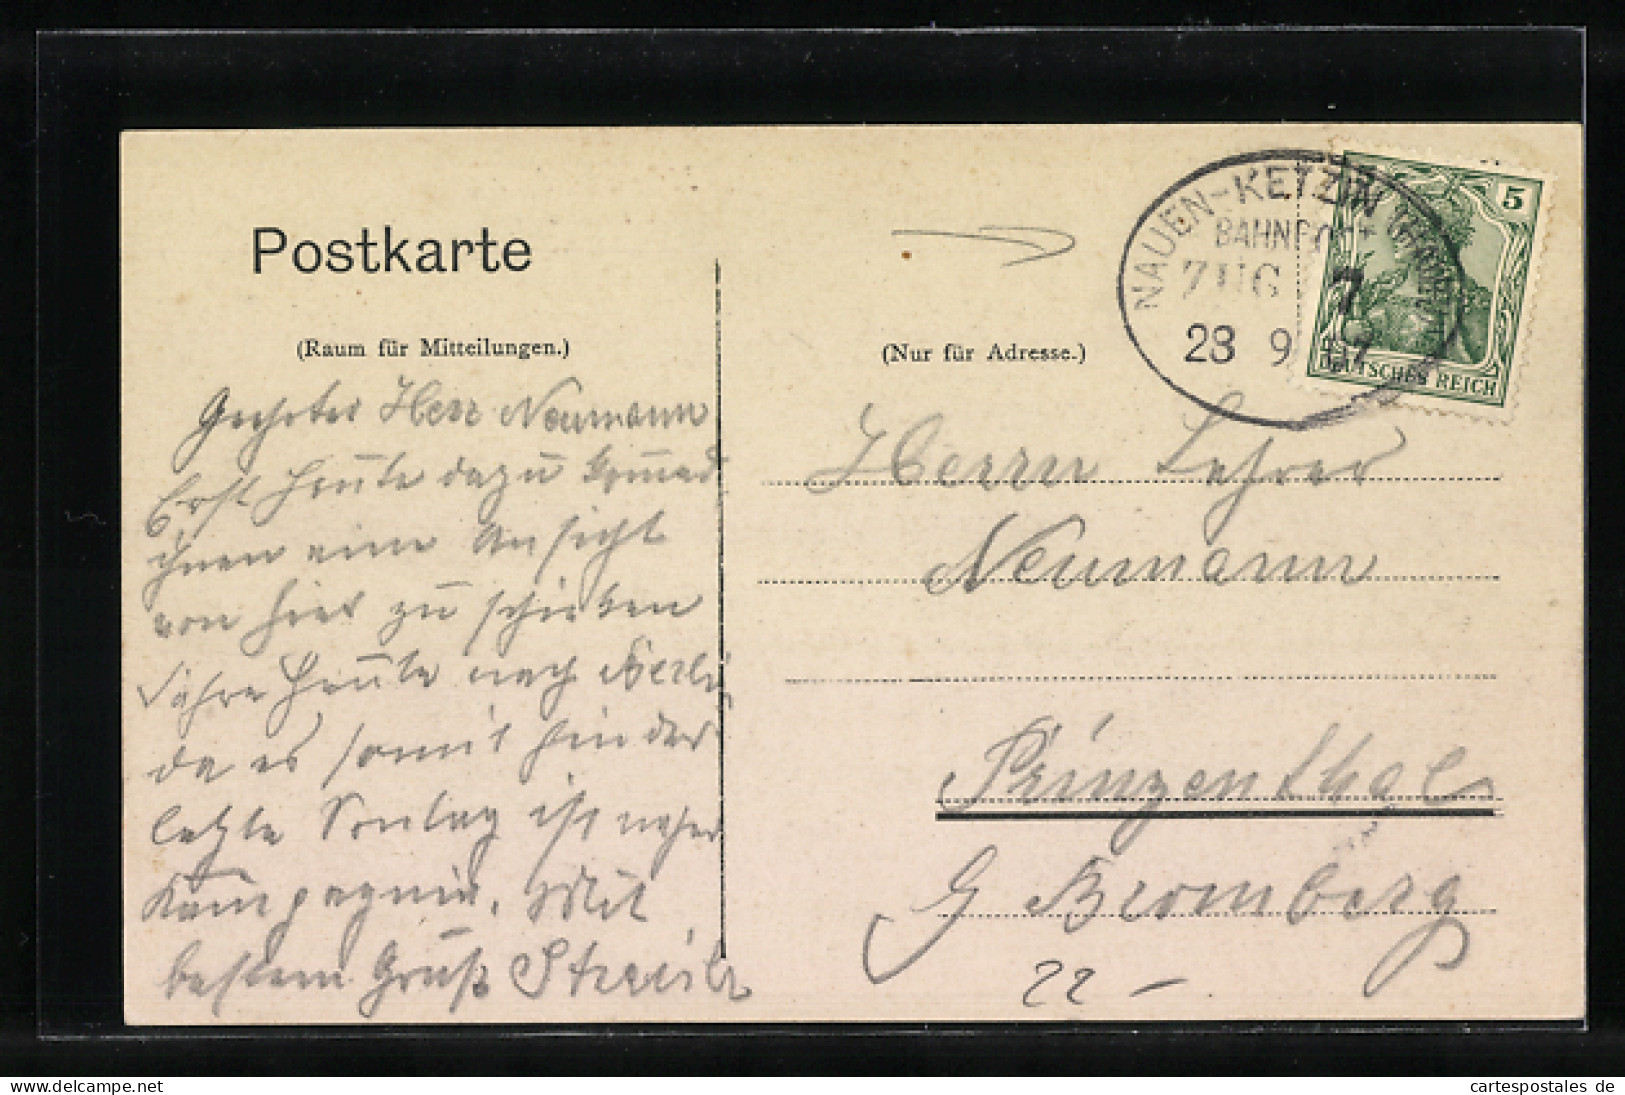 Postkarte
(Raum für Mitteilungen.)
Geehrter Herr Neumann
Erst heute dazu
ihnen eine Ansicht
von hier zu schicken
heute nach Berlin
da es somit hinder
letzte Sontag ist
Mit
bestem Gruß
NAUEN-KETZIN
BAHNPOST
ZUG 7
23 9 07
5
DEUTSCHES REICH
(Nur für Adresse.)
Herrn Lehrer
Neumann
Prinzenthal
Bromberg
22 –
delcampe.net
cartespostales de